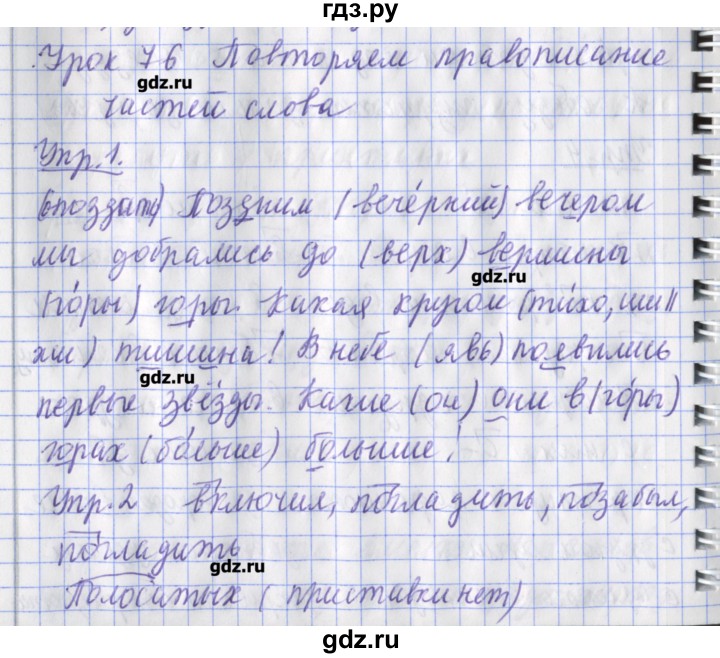 гдз.ру
Урок 76 Повторяем правописание
gdz.ru
частей слова
Упр.1.
(опоздать) Поздним (вече́рний) вечером
мы добрались до (верх) вершины
gdz.ru
(го́ры) горы. Какая кругом (ти́хо, ти||
хи) тишина! В небе (явь) появились
gdz.ru
первые звёзды. Какие (он) они в (го́ры)
горах (бо́льше) большие!
Упр.2 включил, погладить, позабыл,
погладить
gdz.ru
Полосатых (приставки нет)
gdz.ru